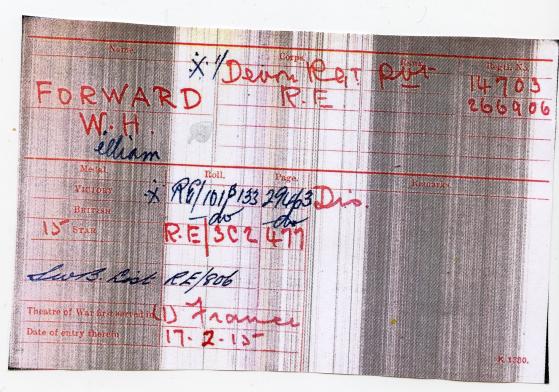 Name. Corps. Rank. Regtl. No.
X. 1/ Devon Rgt Pvt 14703
FORWARD R.E. 266906
W. H.
illiam
Medal. Roll. Page. Remarks.
VICTORY X RE/101B133 29463 Dis.
BRITISH -do- -do-
15 STAR R.E/3C2 477
SWB. List RE/806
Theatre of War first served in (1) France
Date of entry therein 17-2-15
K. 1380.